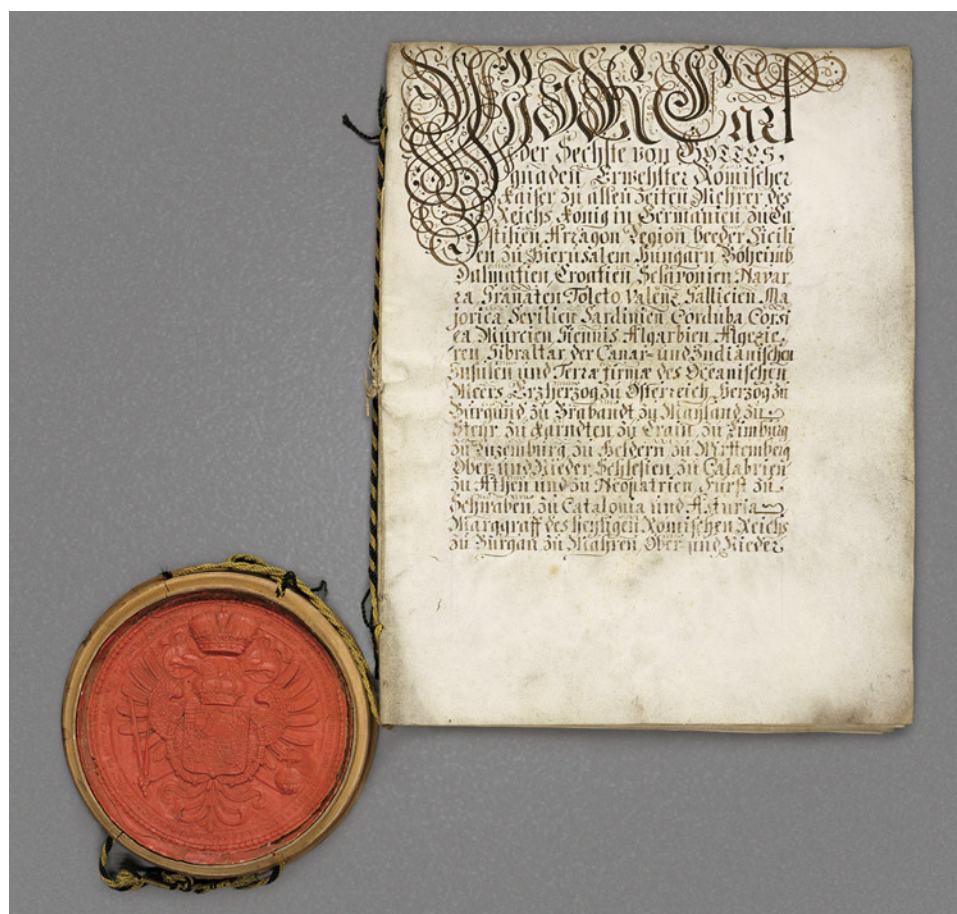 Wir Carl
der Sechste von GOTTES
gnaden Erwehlter Römischer
Kaiser zu allen Zeiten Mehrer des
Reichs König in Germanien zu Ca
stilien Arragon Legion beeder Sicili
en zu Hierusalem Hungarn Böheimb
Dalmatien Croatien Sclavonien Navar
ra Granaten Toleto Valenz Gallicien Ma
jorica Sevilien Sardinien Corduba Corsi
ca Murcien Giennis Algarbien Algezie
ren Gibraltar der Canar- und Indianischen
Insulen und Terræ firmæ des Oceanischen
Meers Erzherzog zu Österreich Herzog zu
Burgund zu Brabandt zu Mayland zu
Steyr zu Kärndten zu Crain zu Limburg
zu Luzemburg zu Geldern zu Württemberg
Ober und Nieder Schlesien zu Calabrien
zu Athen und zu Neopatrien Fürst zu
Schwaben zu Catalonia und Asturia
Marggraff des heyligen Römischen Reichs
zu Burgau zu Mähren Ober und Nieder